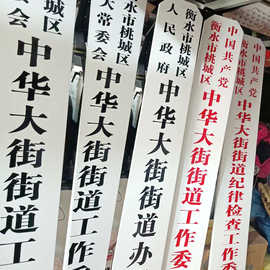 城区
会
中华大街街道工
衡水市桃城区
大常委会
中华大街街道工作
衡水市桃城区
人民政府
中华大街街道办
中国共产党
衡水市桃城区
中华大街街道工作委
中国共产党
衡水市桃城区
中华大街街道纪律检查工作委